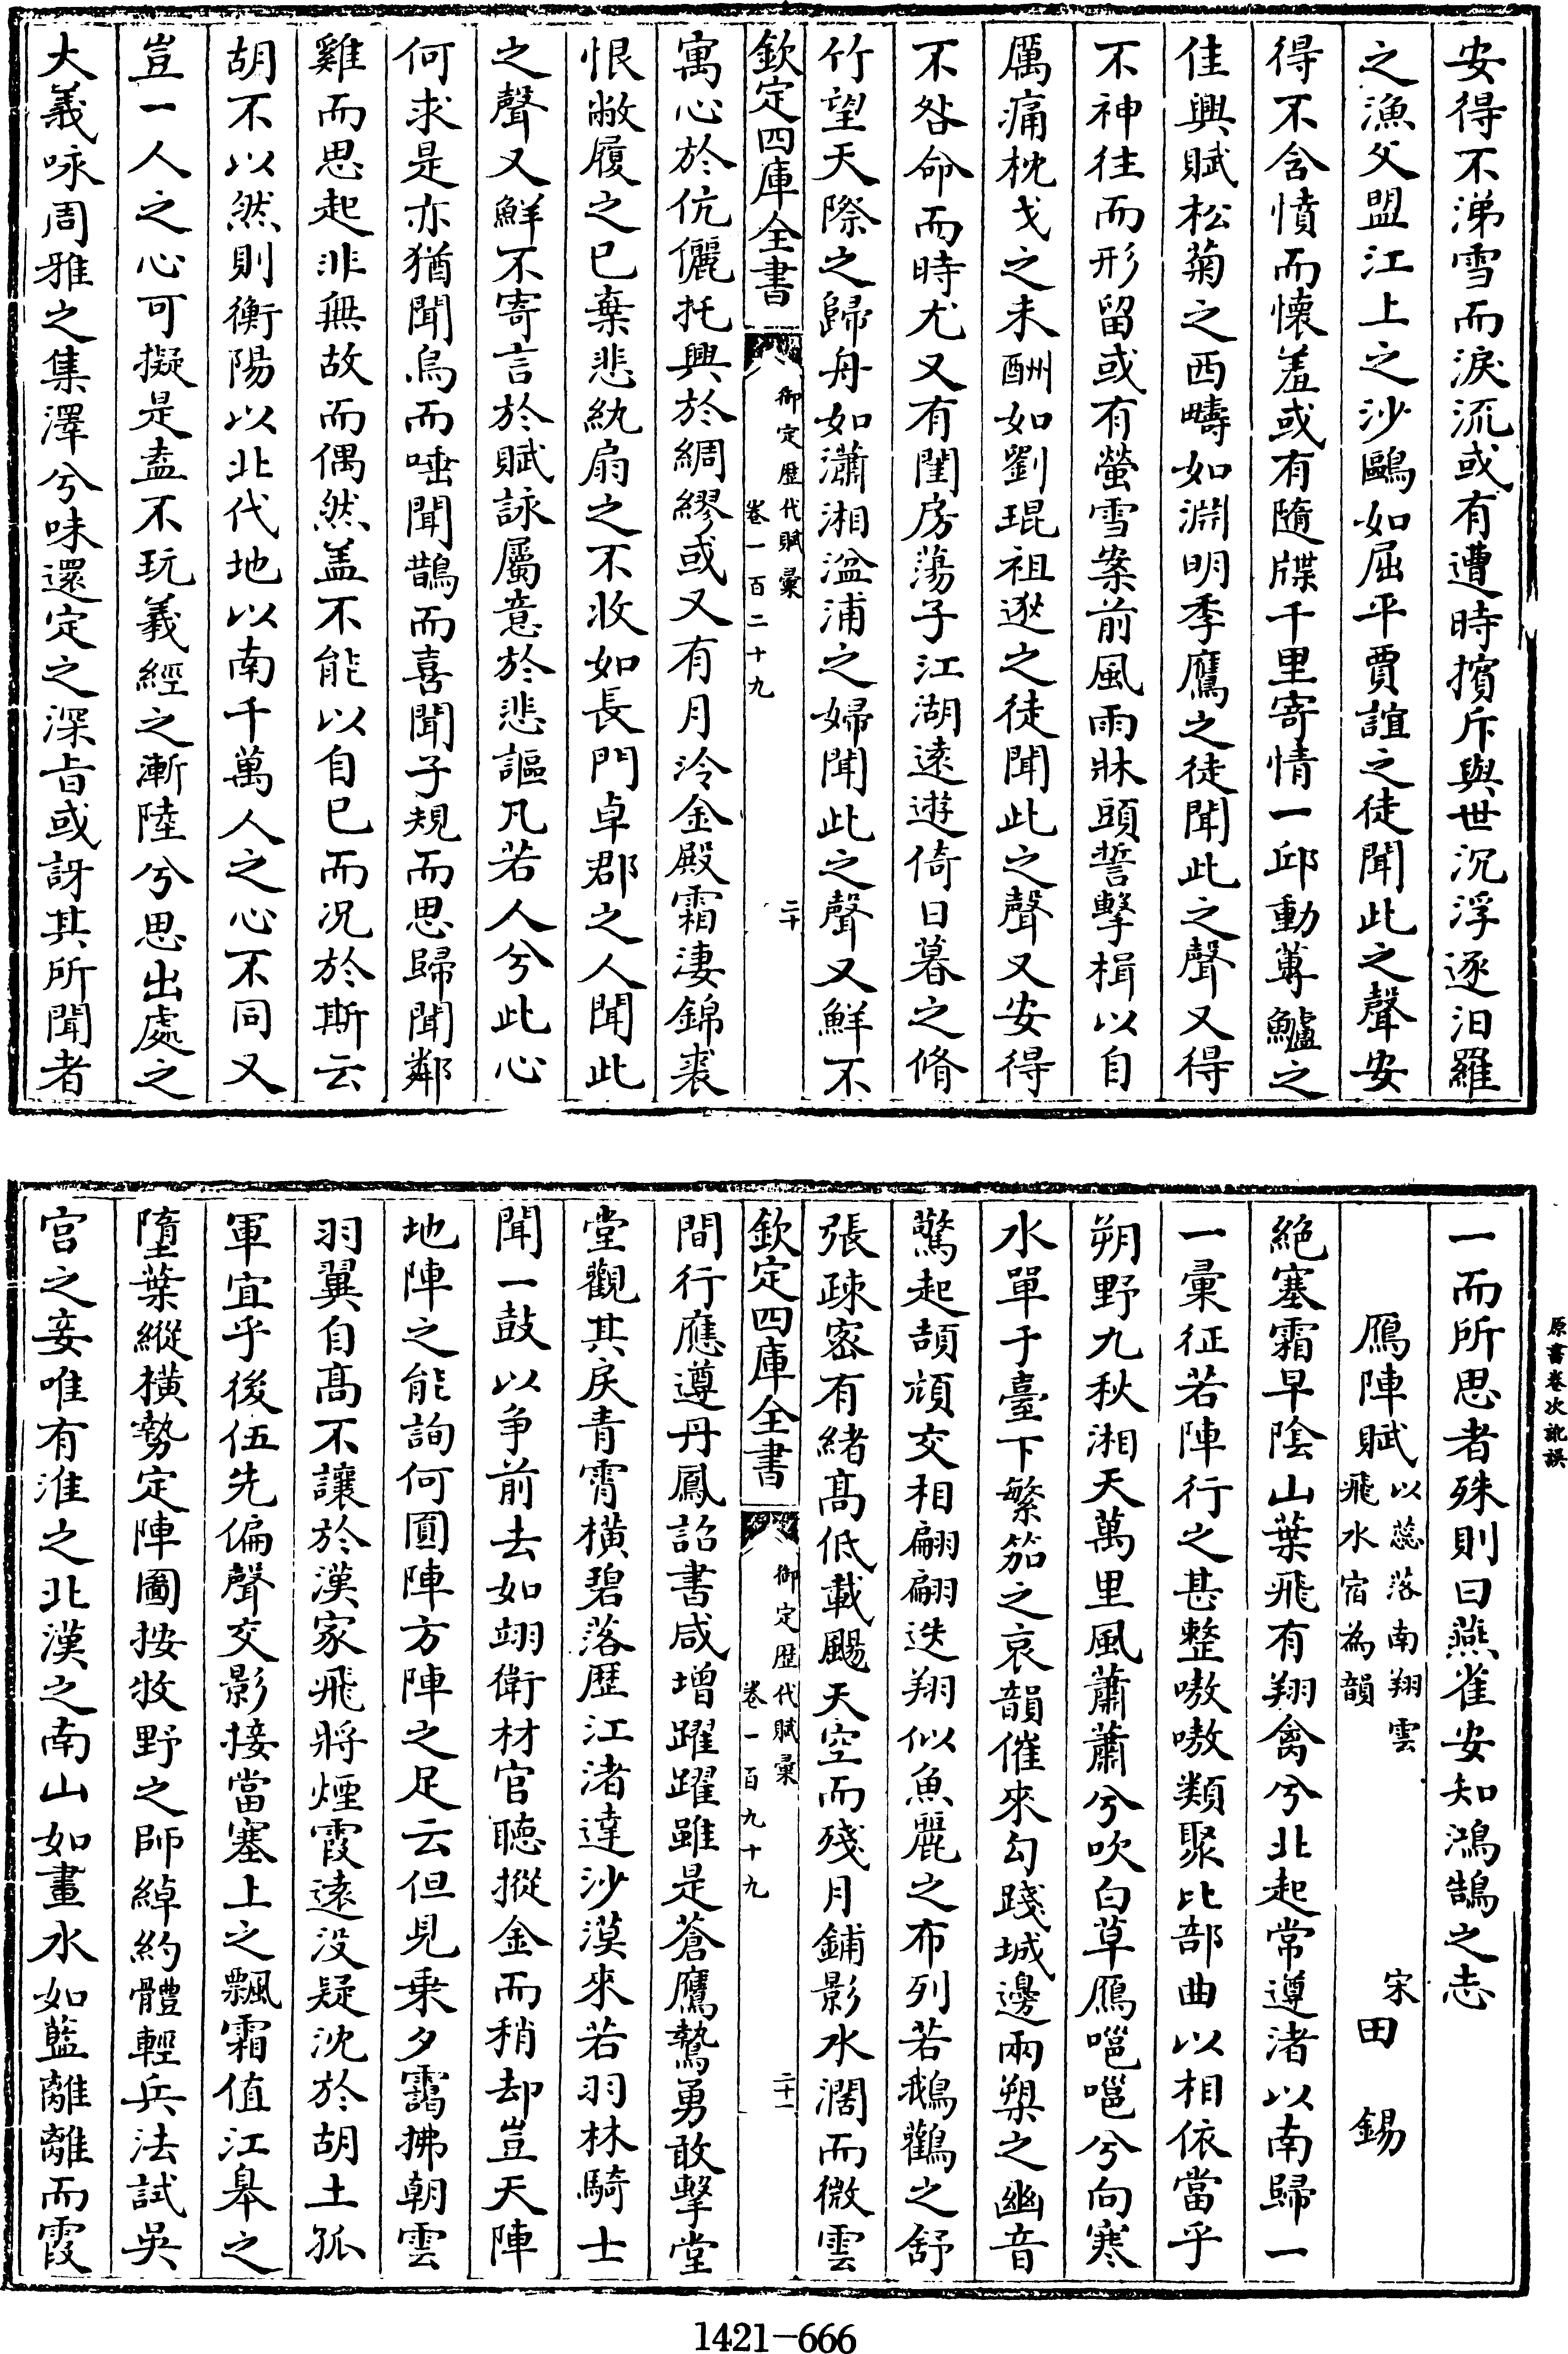 安得不涕雪而淚流或有遭時擯斥與世沉浮逐汨羅
之漁父盟江上之沙鷗如屈平賈誼之徒聞此之聲安
得不含憤而懷羞或有隨牒千里寄情一邱動蓴鱸之
佳興賦松菊之西疇如淵明季鷹之徒聞此之聲又得
不神往而形留或有螢雪案前風雨牀頭誓擊楫以自
厲痛枕戈之未酬如劉琨祖逖之徒聞此之聲又安得
不咎命而時尤又有閨房蕩子江湖遠遊倚日暮之脩
竹望天際之歸舟如瀟湘湓浦之婦聞此之聲又鮮不
欽定四庫全書
御定歷代賦彙
卷一百二十九
二十
寓心於伉儷托興於綢繆或又有月冷金殿霜淒錦裘
恨敝履之已棄悲紈扇之不收如長門卓郡之人聞此
之聲又鮮不寄言於賦詠屬意於悲謳凡若人兮此心
何求是亦猶聞烏而唾聞鵲而喜聞子規而思歸聞鄰
雞而思起非無故而偶然盖不能以自已而况於斯云
胡不以然則衡陽以北代地以南千萬人之心不同又
豈一人之心可擬是盍不玩義經之漸陸兮思出處之
大義咏周雅之集澤兮味還定之深旨或訝其所聞者
一而所思者殊則曰燕雀安知鴻鵠之志
鴈陣賦
以蕊落南翔雲
飛水宿為韻
宋
田錫
絶塞霜早陰山葉飛有翔禽兮北起常遵渚以南歸一
一彙征若陣行之甚整嗷嗷類聚比部曲以相依當乎
朔野九秋湘天萬里風蕭蕭兮吹白草鴈嗈嗈兮向寒
水單于臺下繁笳之哀韻催來勾踐城邊兩槳之幽音
驚起頡頏交相翩翩迭翔似魚麗之布列若鵝鸛之舒
張疎密有緒高低載颺天空而殘月鋪影水濶而微雲
欽定四庫全書
御定歷代賦彙
卷一百九十九
二十一
間行應遵丹鳳詔書咸增躍躍雖是蒼鷹鷙勇敢擊堂
堂觀其戾青霄橫碧落歷江渚達沙漠來若羽林騎士
聞一鼓以争前去如翊衛材官聽摐金而稍却豈天陣
地陣之能詢何圓陣方陣之足云但見乗夕靄拂朝雲
羽翼自高不讓於漢家飛將煙霞遠没疑沈於胡土孤
軍宜乎後伍先偏聲交影接當塞上之飄霜值江皋之
墮葉縱橫勢定陣圖按牧野之師綽約體輕兵法試吳
宫之妾唯有淮之北漢之南山如畫水如藍離離而霞
原書卷次訛誤
1421-666